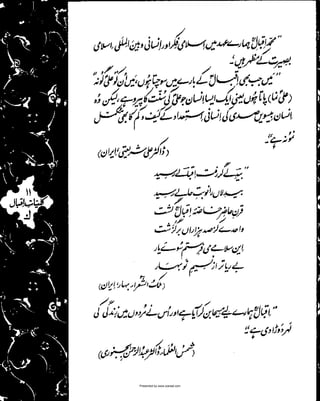 "محمد اقبالؒ ہمارے عہد میں اسلامی فکر اور انسانی و بین المللی، اسلامی
بصیرت کے مظہر ہیں۔"
"میں جب بھی اقبال کے بارے میں سوچتا ہوں، میں اُن کو علیؓ گونہ
(علیؓ نما) پاتا ہوں یعنی ایک ایسا انسان جو علیؓ کی سُنّت کا پیرو ہے، لیکن وہ
انسان بیسویں صدی کی انسانی استعداد کے کیف و کم کا بھی
نمونہ ہے"
(ڈاکٹر علی شریعتی، ایران)
بیدلے گر رفت اقبالے رسید
بیدلاں را نوبتِ حالے رسید
قرنِ حاضر خاصۂ اقبال گشت
واحدے کز صد ہزاراں برگزشت
بے ریا تر از نسیم نوبہار
(ملک الشعراء بہار، ایران)
"اقبالؒ ہمارے لیے مسیحا بن کر آیا ہے اور اُس نے مُردوں میں زندگی کی
لہر دوڑا دی ہے"
(شمس العلماء ڈاکٹر عبدالرحمٰن بجنوری)
۱۱
کلیاتِ اقبال
ک
Presented by www.iqbalpal.com